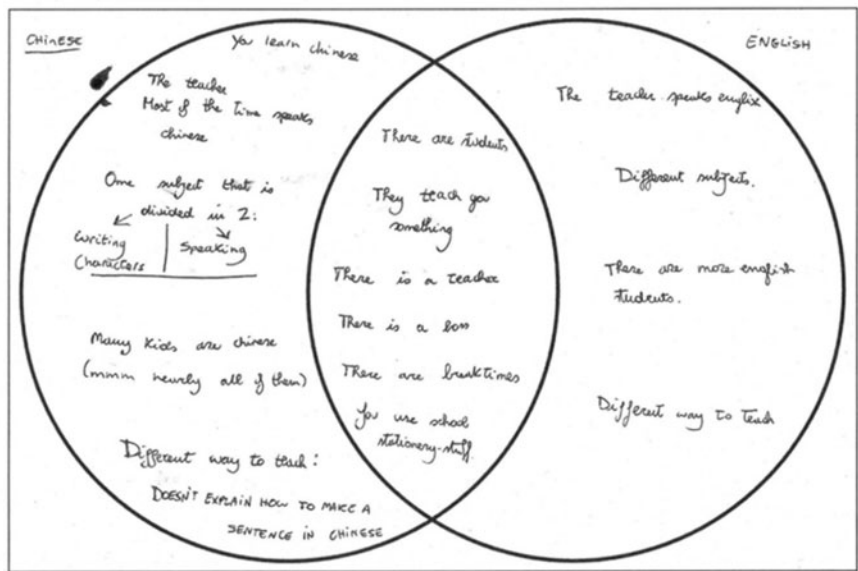 CHINESE
You learn chinese
The teacher
Most of the time speaks
chinese
One subject that is
divided in 2:
Writing
Characters
Speaking
Many kids are chinese
(mmm nearly all of them)
Different way to teach:
DOESN'T EXPLAIN HOW TO MAKE A
SENTENCE IN CHINESE
There are students
They teach you
something
There is a teacher
There is a boss
There are breaktimes
You use school
stationery-stuff.
ENGLISH
The teacher speaks englix
Different subjects.
There are more english
students.
Different way to teach